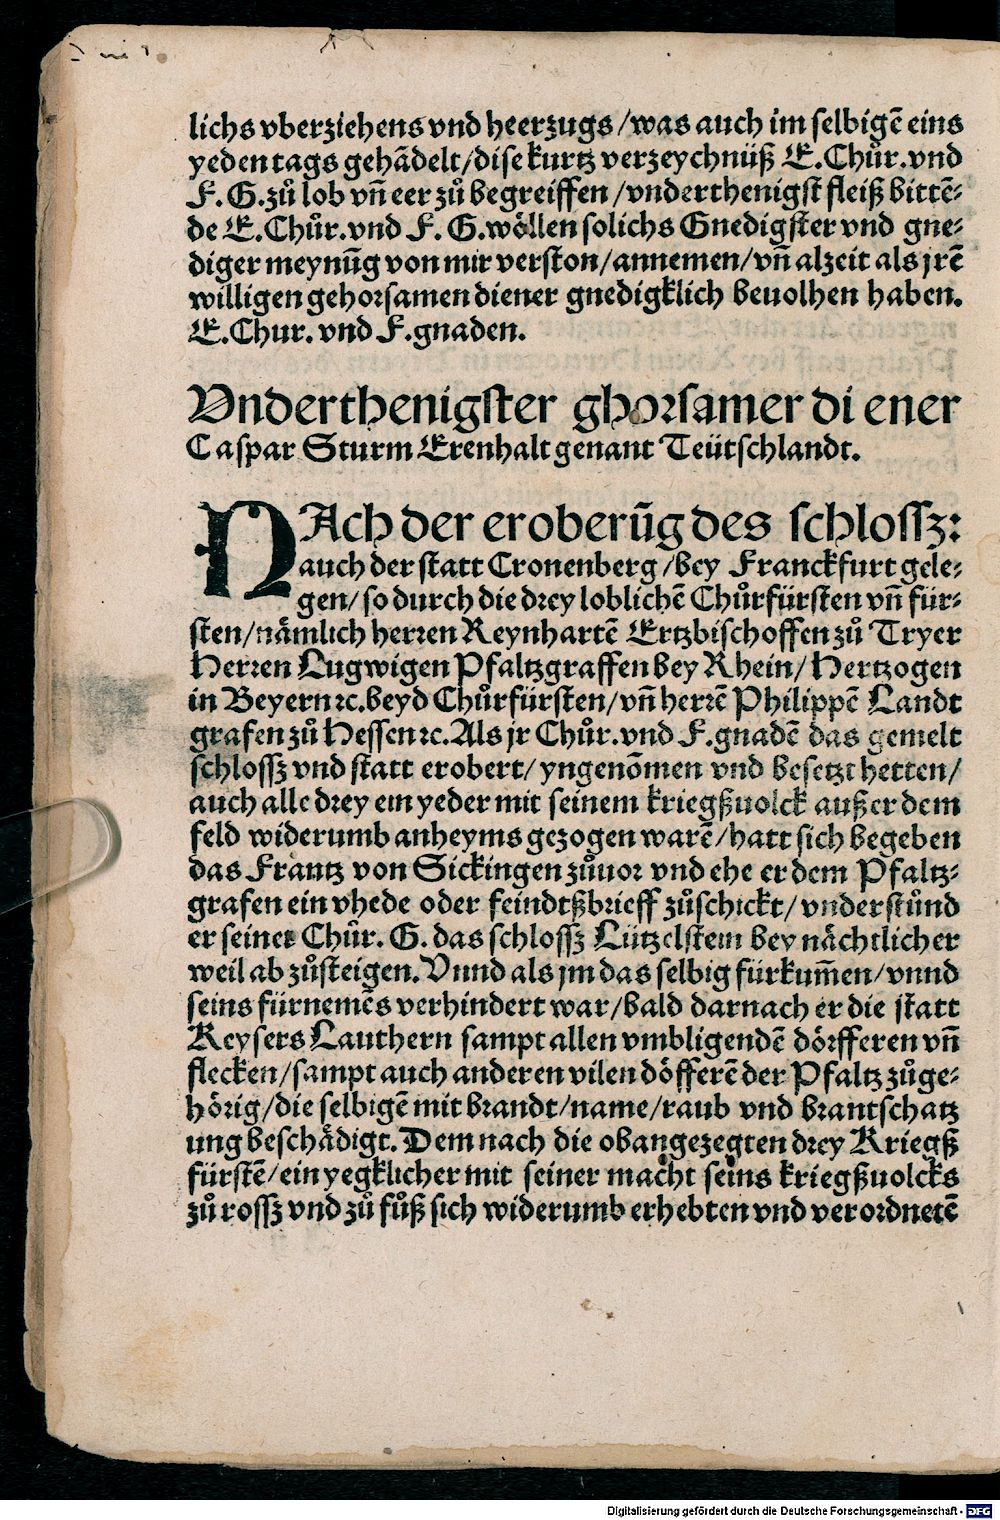 lichs vberziehens vnd heerzugs/was auch im selbigē eins
yeden tags gehādelt/dise kurtz verzeychnüß E.Chůr.vnd
F.G.zů lob vn̄ eer zů begreiffen/vnderthenigst fleiß bittē⸗
de E.Chůr.vnd F.G.wöllen solichs Gnedigster vnd gne⸗
diger meynūg von mir verston/annemen/vn̄ alzeit als jrē
willigen gehorsamen diener gnedigklich beuolhen haben.
E.Chur.vnd F.gnaden.
Vnderthenigster ghorsamer di ener
Caspar Sturm Erenhalt genant Teütschlandt.
NAch der eroberūg des schlossz:
auch der statt Cronenberg/bey Franckfurt gele⸗
gen/so durch die drey loblichē Chůrfürsten vn̄ für⸗
sten/nämlich herren Reynhartē Ertzbischoffen zů Tryer
Herren Lugwigen Pfaltzgraffen bey Rhein/Hertzogen
in Beyern ꝛc.beyd Chůrfürsten/vn̄ herrē Philippē Landt
grafen zů Hessen ꝛc.Als jr Chůr.vnd F.gnadē das gemelt
schlossz vnd statt erobert/yngenōmen vnd besetzt hetten/
auch alle drey ein yeder mit seinem kriegßuolck außer dem
feld widerumb anheyms gezogen warē/hatt sich begeben
das Frantz von Sickingen zůuor vnd ehe er dem Pfaltz⸗
grafen ein vhede oder feindtßbrieff zůschickt/vnderstůnd
er seiner Chůr.G.das schlossz Lützelstein bey nächtlicher
weil ab zůsteigen.Vnnd als jm das selbig fürkum̄en/vnnd
seins fürnemēs verhindert war/bald darnach er die statt
Keysers Lauthern sampt allen vmbligendē dörfferen vn̄
flecken/sampt auch anderen vilen döfferē der Pfaltz zůge⸗
hörig/die selbigē mit brandt/name/raub vnd brantschatz
ung beschädigt.Dem nach die obangezegten drey Kriegß
fürstē/ein yegklicher mit seiner macht seins kriegßuolcks
zů rossz vnd zů fůß sich widerumb erhebten vnd verordnetē
Digitalisierung gefördert durch die Deutsche Forschungsgemeinschaft - DFG